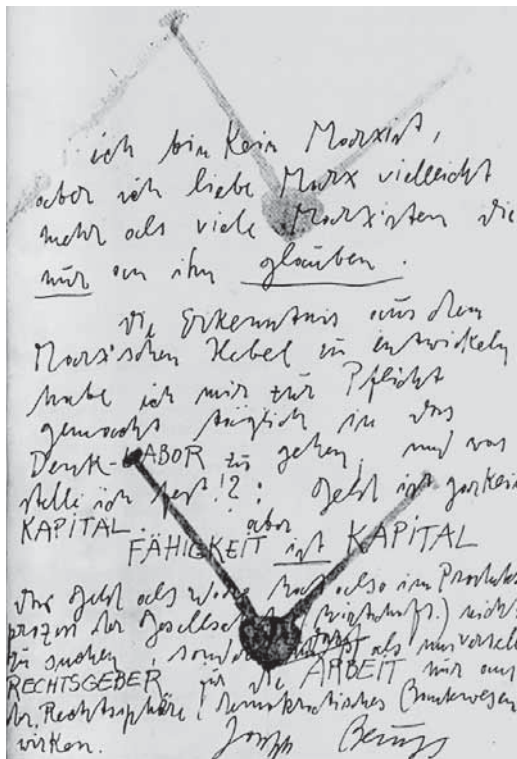 ich bin kein Marxist,
aber ich liebe Marx vielleicht
mehr als viele Marxisten die
nur an ihn glauben.
Die Erkenntnis aus dem
Marxschen Hebel zu entwickeln
habe ich mir zur Pflicht
gemacht täglich in das
Denk-LABOR zu gehen, und was
stelle ich fest!?: Geld ist gar kein
KAPITAL. aber
FÄHIGKEIT ist KAPITAL
Das Geld als Ware hat also im Produktions
prozess der Gesellschaft (Wirtschaft.) nichts
zu suchen, sondern als
RECHTSGEBER für die ARBEIT nur aus
der Rechtssphäre (demokratisches Bankwesen
wirken. Joseph Beuys